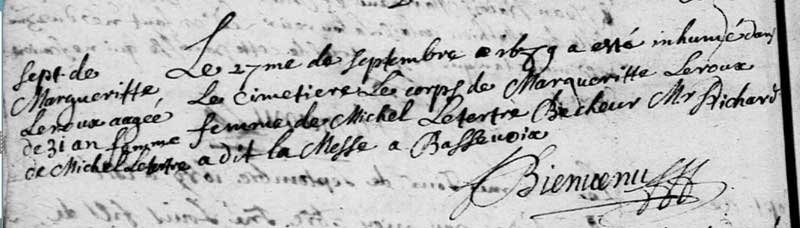 Sept. de
Margueritte
Leroux aageé
de 31 an femme
de Michel Letertre
Le 27me de Septembre 1679 a esté inhumé dans
Le cimetiere Le corps de Margueritte Leroux
femme de Michel Letertre Becheur Mr Richard
a dit La Messe a Bassevoix
Bienvenu